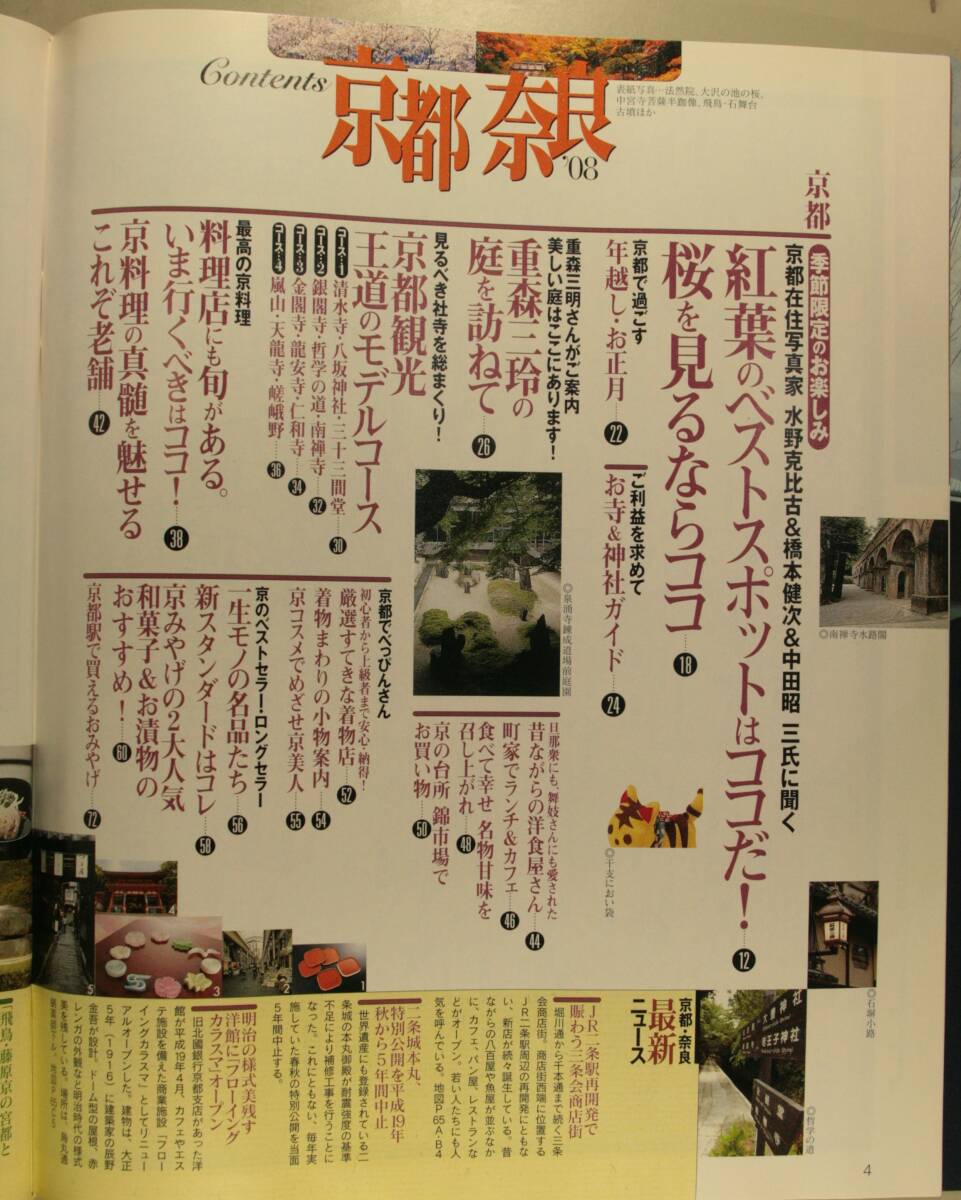 Contents
京都 奈良
'08
表紙写真…法然院、大沢の池の桜、
中宮寺菩薩半跏像、飛鳥・石舞台
古墳ほか
京都
季節限定のお楽しみ
京都在住写真家 水野克比古&橋本健次&中田昭 三氏に聞く
紅葉のベストスポットはココだ!……12
桜を見るならココ……18
京都で過ごす
年越し・お正月……22
ご利益を求めて
お寺&神社ガイド……24
重森三明さんがご案内
美しい庭はここにあります!
重森三玲の
庭を訪ねて……26
見るべき社寺を総まくり!
京都観光
王道のモデルコース
コース・1 清水寺・八坂神社・三十三間堂……30
コース・2 銀閣寺・哲学の道・南禅寺……32
コース・3 金閣寺・龍安寺・仁和寺……34
コース・4 嵐山・天龍寺・嵯峨野……36
最高の京料理
料理店にも旬がある。
いま行くべきはココ!……38
京料理の真髄を魅せる
これぞ老舗……42
◎南禅寺水路閣
◎泉涌寺錬成道場前庭園
◎干支におい袋
◎石塀小路
◎哲学の道
旦那衆にも、舞妓さんにも愛された
昔ながらの洋食屋さん……44
町家でランチ&カフェ……46
食べて幸せ 名物甘味を
召し上がれ……48
京の台所 錦市場で
お買い物……50
京都でべっぴんさん
初心者から上級者まで安心・納得!
厳選すてきな着物店……52
着物まわりの小物案内……54
京コスメでめざせ京美人……55
京のベストセラー・ロングセラー
一生モノの名品たち……56
新スタンダードはコレ……58
京みやげの2大人気
和菓子&お漬物の
おすすめ!……60
京都駅で買えるおみやげ……72
1
2
3
4
5
京都・奈良
最新
ニュース
JR二条駅再開発で
賑わう三条会商店街
堀川通から千本通まで続く三条
会商店街。商店街西端に位置する
JR二条駅周辺の再開発にともな
い、新店が続々誕生している。昔
ながらの八百屋や魚屋が並ぶなか
に、カフェ、パン屋、レストランな
どがオープン。若い人たちにも人
気を呼んでいる。地図P65A・B4
二条城本丸、
特別公開を平成19年
秋から5年間中止
世界遺産にも登録されている二
条城の本丸御殿が耐震強度の基準
不足により補修工事を行うことに
なった。これにともない、毎年実
施していた春秋の特別公開を当面
5年間中止する。
明治の様式美残す
洋館に「フローイング
カラスマ」オープン
旧北國銀行京都支店があった洋
館が平成19年4月、カフェやエス
テ施設を備えた商業施設「フロー
イングカラスマ」としてリニュー
アルオープンした。建物は、大正
5年(1916)に建築家の辰野
金吾が設計。ドーム型の屋根、赤
レンガの外観など明治時代の様式
美を残している。場所は、烏丸通
飛鳥・藤原京の宮都と
4